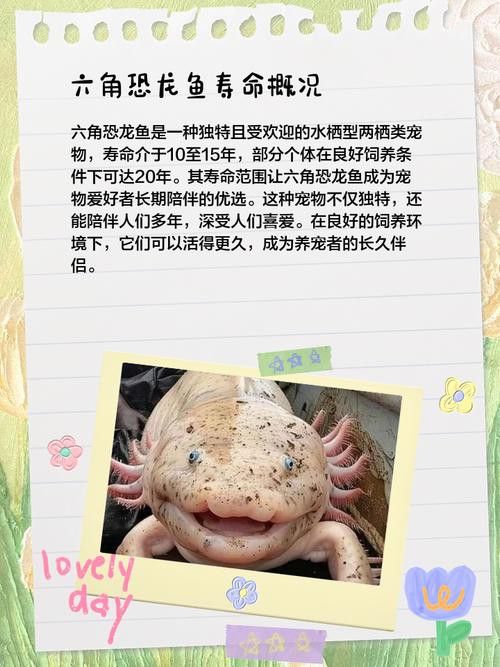 六角恐龙鱼寿命概况
六角恐龙鱼是一种独特且受欢迎的水栖型两栖类宠
物，寿命介于10至15年，部分个体在良好饲养条
件下可达20年。其寿命范围让六角恐龙鱼成为宠
物爱好者长期陪伴的优选。这种宠物不仅独特，还
能陪伴人们多年，深受人们喜爱。在良好的饲养环
境下，它们可以活得更久，成为养宠者的长久伴
侣。
lovely
day